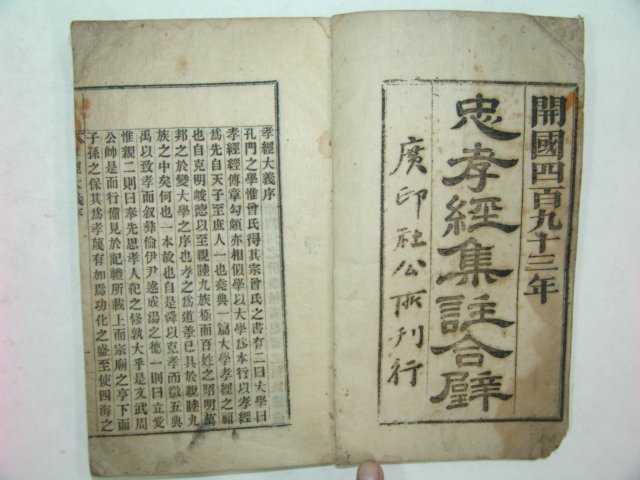 開國四百九十三年
忠孝經集註合壁
廣印社公所刊行
孝經大義序
孔門之學惟曾氏得其宗曾氏之書有二曰大學曰
孝經經傳章句頗亦相似學以大學爲本行以孝經
爲先自天子至庶人一也堯典一篇大學孝經之祖
也自克明峻德以至親睦九族極而百姓之昭明萬
邦之於變大學之序也孝之爲道善已具於親睦九
族之中矣何也一本故也自是舜以克孝而徽五典
禹以致孝而叙彝倫伊尹述成湯之德一則曰立愛
惟親二則曰奉先思孝人紀之修孰大乎是文武周
公帥是而行備見於記禮所載上而宗廟之亨下而
子孫之保其爲孝蔑有加焉功化之盛至使四海之